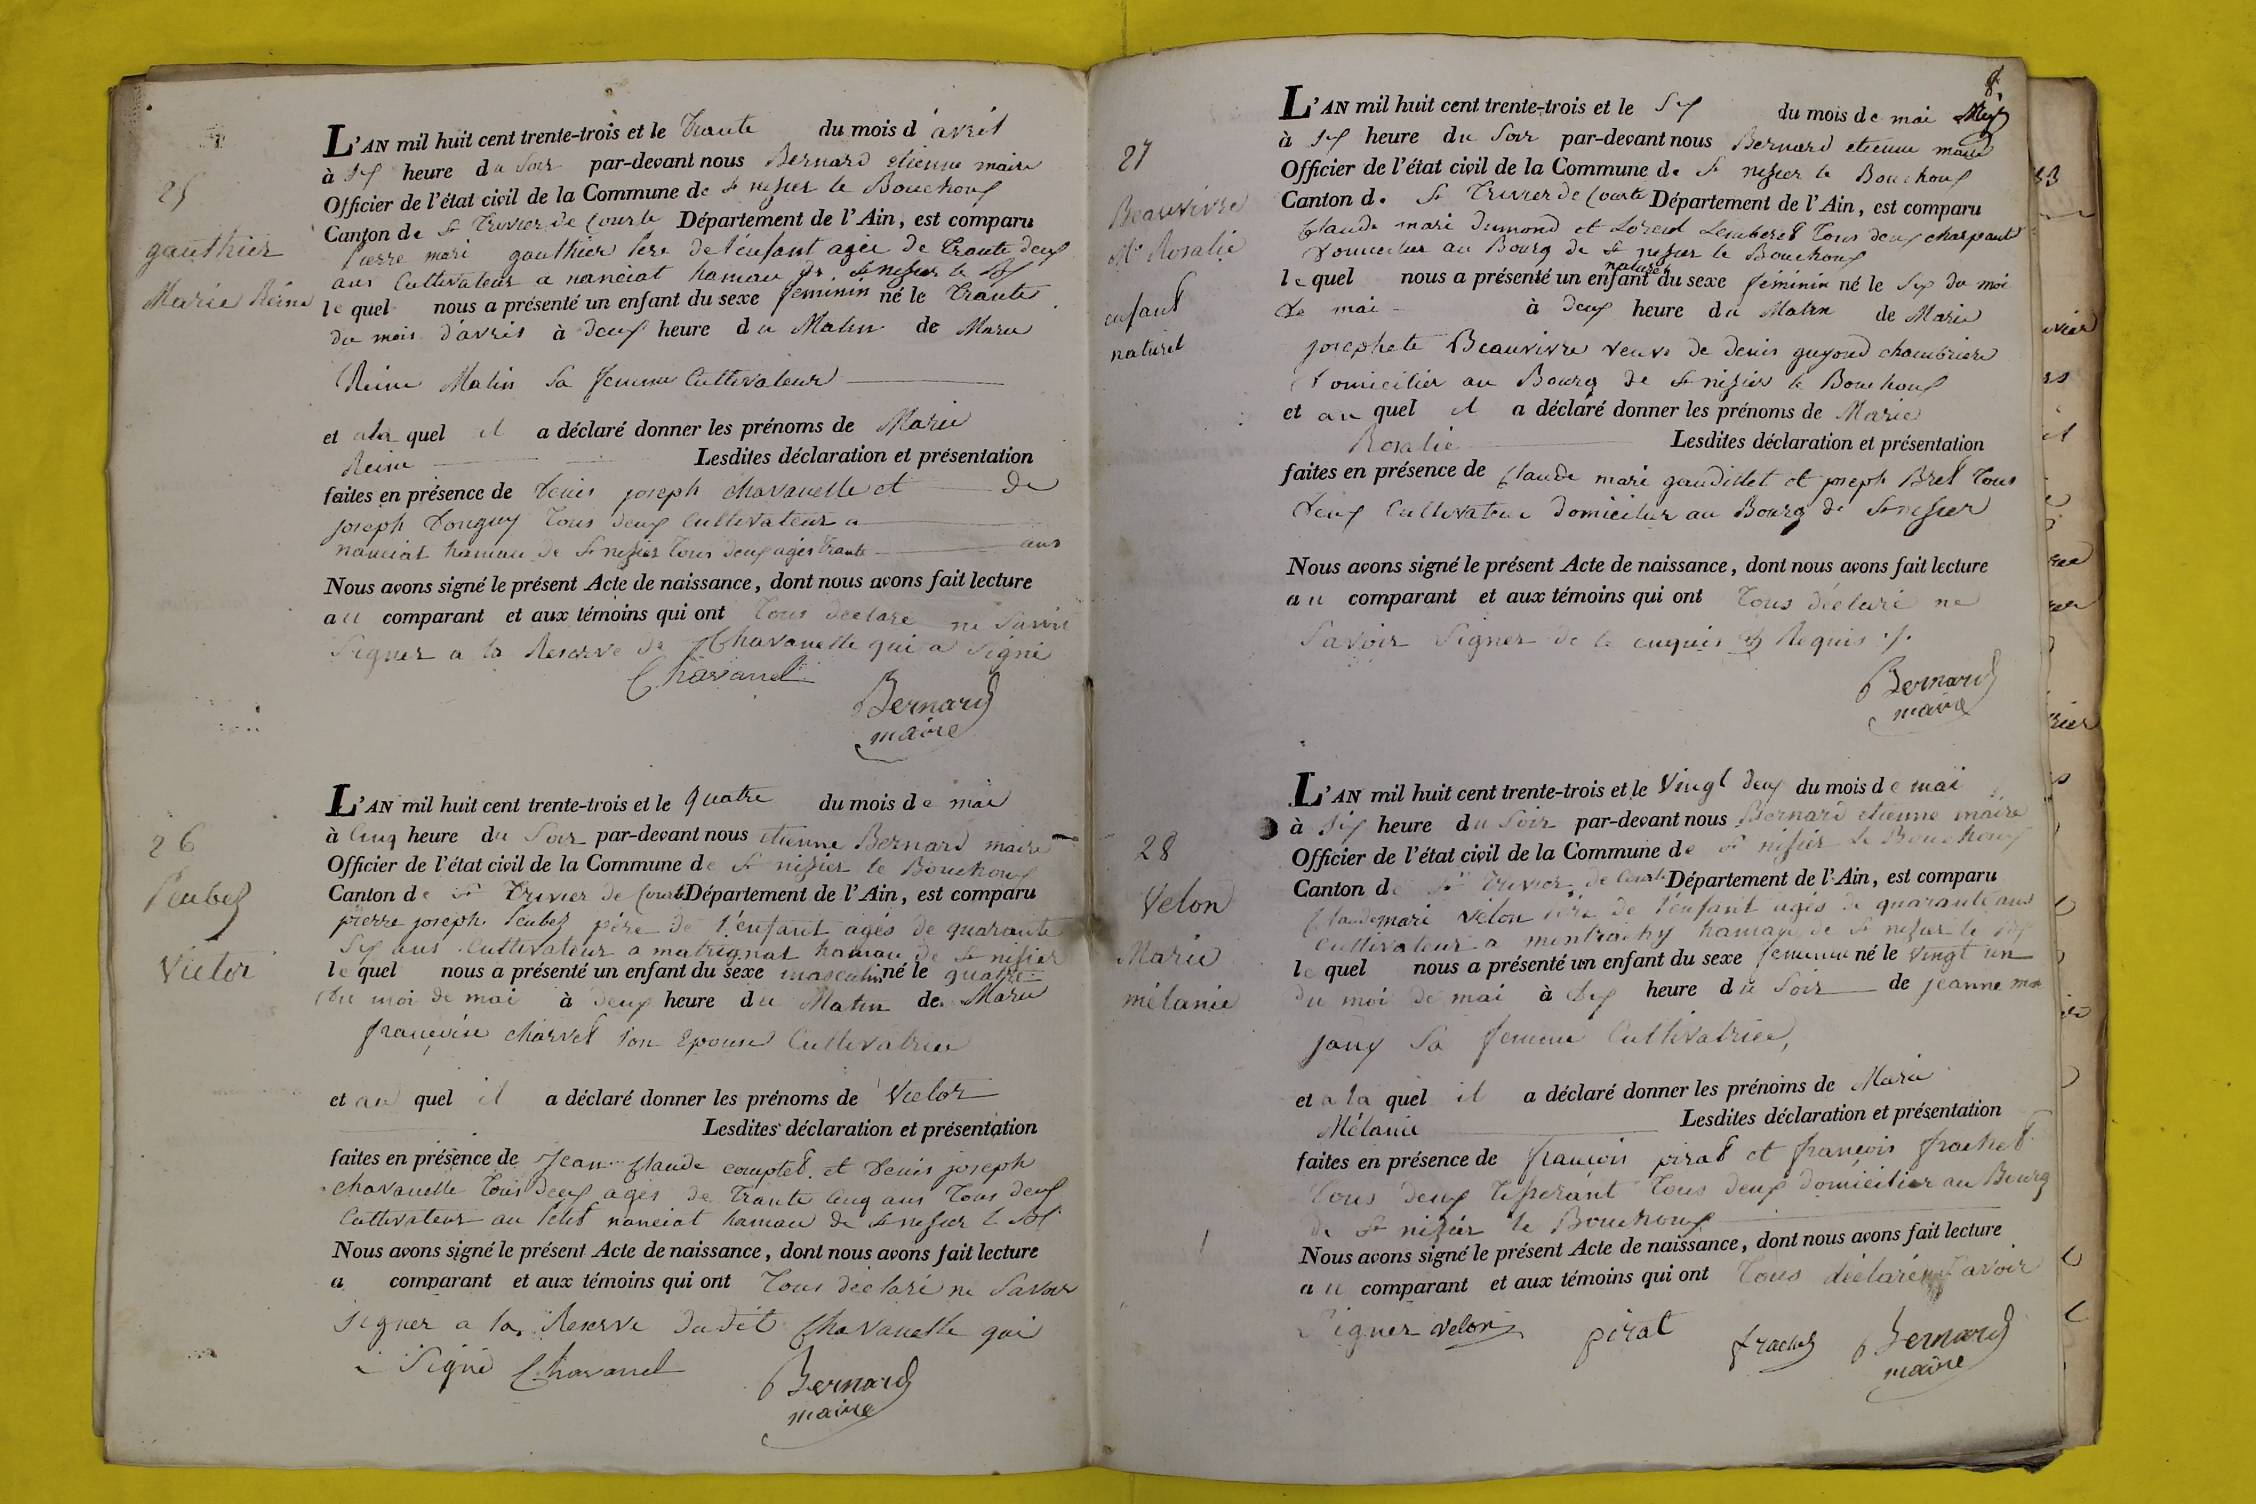 25
gauthier
Marie Reine
L'AN mil huit cent trente-trois et le Trante du mois d'avril
à six heure du Soir par-devant nous Bernard etienne maire
Officier de l'état civil de la Commune de St nisier le Bouchoux
Canton de St Trivier de Courte Département de l'Ain, est comparu
pierre mari gauthier pere de l'enfant agée de Trante deux
ans Cultivateur a nanciat hamau de St nisier le
le quel nous a présenté un enfant du sexe feminin né le Trante
du mois d'avril à deux heure du Matin de Marie
Reine Matin sa femme Cultivateur
et a la quel il a déclaré donner les prénoms de Marie
Reine Lesdites déclaration et présentation
faites en présence de Denis joseph chavanelle et de
joseph Donguy Tous deux Cultivateur a
nanciat hamau de St nisier Tous deux agés Trante ans
Nous avons signé le présent Acte de naissance, dont nous avons fait lecture
au comparant et aux témoins qui ont Tous declaré ne Savoir
Signer a la Reserve de Chavanelle qui a Signé
Chavanel
Bernard
maire
26
Peubez
Victor
L'AN mil huit cent trente-trois et le quatre du mois de mai
à Cinq heure du Soir par-devant nous etienne Bernard maire
Officier de l'état civil de la Commune de St nisier le Bouchoux
Canton de St Trivier de Courte Département de l'Ain, est comparu
pierre joseph Peubez père de l'enfant agés de quarante
Six ans Cultivateur a matrignat hamau de St nisier
le quel nous a présenté un enfant du sexe masculin né le quatre
du moi de mai à deux heure du Matin de Marie
françoise charvet son Epouse Cultivatrice
et au quel il a déclaré donner les prénoms de Victor
Lesdites déclaration et présentation
faites en présence de Jean Claude comptet et Denis joseph
chavanelle Tous deux agés de Trante Cinq ans Tous deux
Cultivateur au Petit nanciat hamau de St nisier le
Nous avons signé le présent Acte de naissance, dont nous avons fait lecture
a comparant et aux témoins qui ont Tous declaré ne Savoir
Signer a la Reserve dudit Chavanelle qui
a Signé Chavanel
Bernard
maire
8.
27
Beauvivre
Mie Rosalie
enfant
naturel
L'AN mil huit cent trente-trois et le Six du mois de mai
à Six heure du Soir par-devant nous Bernard etienne maire
Officier de l'état civil de la Commune de St nisier le Bouchoux
Canton de St Trivier de Courte Département de l'Ain, est comparu
Claude mari Dumond et Loreul Tous deux charpantié
Domicilier au Bourg de St nisier le Bouchoux
naturel
le quel nous a présenté un enfant du sexe féminin né le Six du moi
de mai à deux heure du Matin de Marie
josephete Beauvivre veuve de denis guyond chambriere
Domicilier au Bourg de St nisier le Bouchoux
et au quel il a déclaré donner les prénoms de Marie
Rosalie Lesdites déclaration et présentation
faites en présence de Claude mari gaudillet et joseph Bret Tous
deux Cultivateur domicilier au Bourg de St nisier
Nous avons signé le présent Acte de naissance, dont nous avons fait lecture
au comparant et aux témoins qui ont Tous déclaré ne
Savoir Signer de ce enquis Requis ./.
Bernard
maire
28
Velon
Marie
mélanie
L'AN mil huit cent trente-trois et le Vingt deux du mois de mai
à Six heure du Soir par-devant nous Bernard etienne maire
Officier de l'état civil de la Commune de St nisier le Bouchoux
Canton de St Trivier de Courte Département de l'Ain, est comparu
Claude mari Velon père de l'enfant agés de quarante ans
Cultivateur a hamau de St nisier le
le quel nous a présenté un enfant du sexe feminin né le Vingt un
du moi de mai à Six heure du Soir de jeanne
joux Sa femme Cultivatrice,
et a la quel il a déclaré donner les prénoms de Marie
Mélanie Lesdites déclaration et présentation
faites en présence de francois pirat et françois frachet
Tous deux Tisserant Tous deux domicilier au Bourg
de St nisier le Bouchoux
Nous avons signé le présent Acte de naissance, dont nous avons fait lecture
au comparant et aux témoins qui ont Tous déclaré Savoir
Signer Velon pirat frachet Bernard
maire